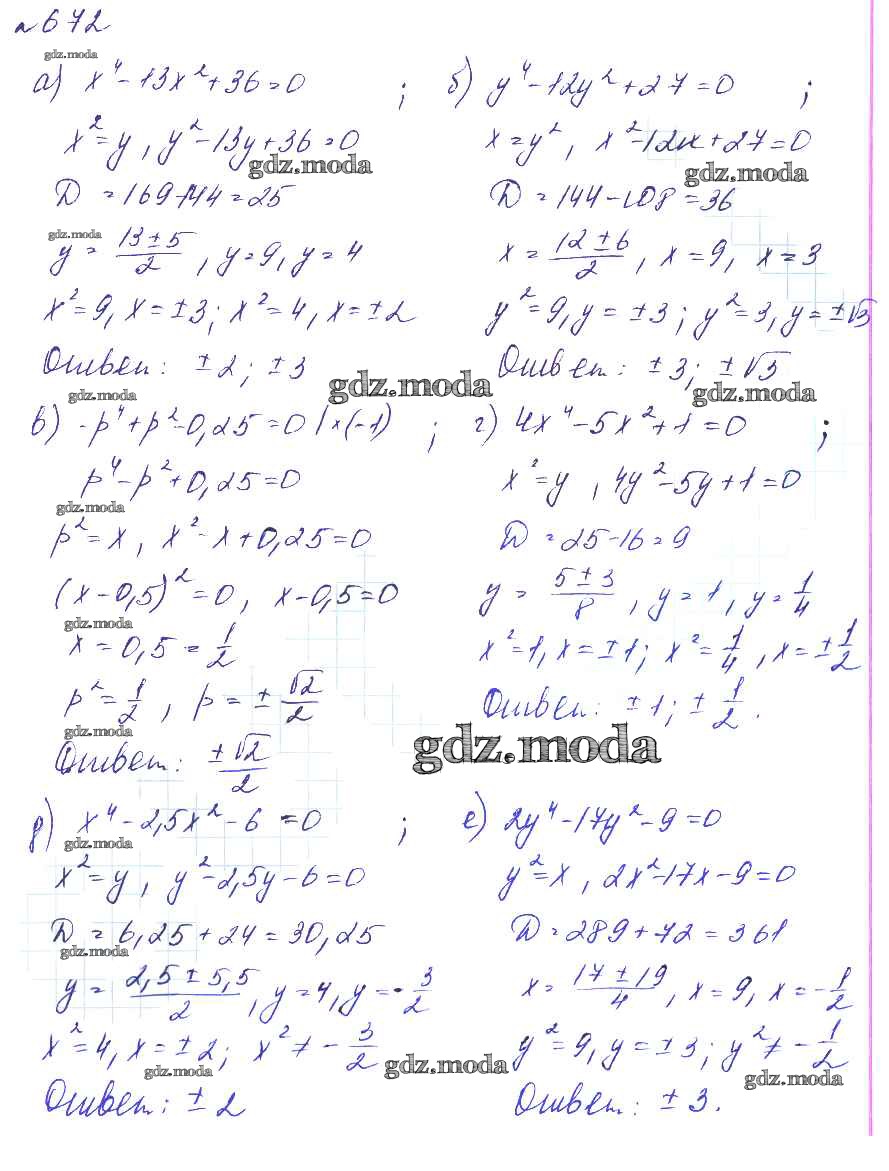 №672
gdz.moda
а) x⁴ - 13x² + 36 = 0 ;
x² = y, y² - 13y + 36 = 0
gdz.moda
D = 169 - 144 = 25
gdz.moda
y = (13 ± 5)/2, y = 9, y = 4
x² = 9, x = ±3; x² = 4, x = ±2
Ответ: ±2; ±3
gdz.moda
б) y⁴ - 12y² + 27 = 0 ;
x = y², x² - 12x + 27 = 0
gdz.moda
D = 144 - 108 = 36
x = (12 ± 6)/2, x = 9, x = 3
y² = 9, y = ±3; y² = 3, y = ±√3
Ответ: ±3; ±√3
gdz.moda
gdz.moda
в) -p⁴ + p² - 0,25 = 0 | × (-1) ;
p⁴ - p² + 0,25 = 0
gdz.moda
p² = x, x² - x + 0,25 = 0
(x - 0,5)² = 0, x - 0,5 = 0
gdz.moda
x = 0,5 = 1/2
p² = 1/2, p = ± √2/2
gdz.moda
Ответ: ±√2/2
г) 4x⁴ - 5x² + 1 = 0 ;
x² = y, 4y² - 5y + 1 = 0
D = 25 - 16 = 9
y = (5 ± 3)/8, y = 1, y = 1/4
x² = 1, x = ±1; x² = 1/4, x = ±1/2
Ответ: ±1; ±1/2.
gdz.moda
д) x⁴ - 2,5x² - 6 = 0 ;
gdz.moda
x² = y, y² - 2,5y - 6 = 0
D = 6,25 + 24 = 30,25
gdz.moda
y = (2,5 ± 5,5)/2, y = 4, y = -3/2
x² = 4, x = ±2; x² ≠ -3/2
gdz.moda
gdz.moda
Ответ: ±2
е) 2y⁴ - 17y² - 9 = 0
y² = x, 2x² - 17x - 9 = 0
D = 289 + 72 = 361
x = (17 ± 19)/4, x = 9, x = -1/2
y² = 9, y = ±3; y² ≠ -1/2
gdz.moda
Ответ: ±3.